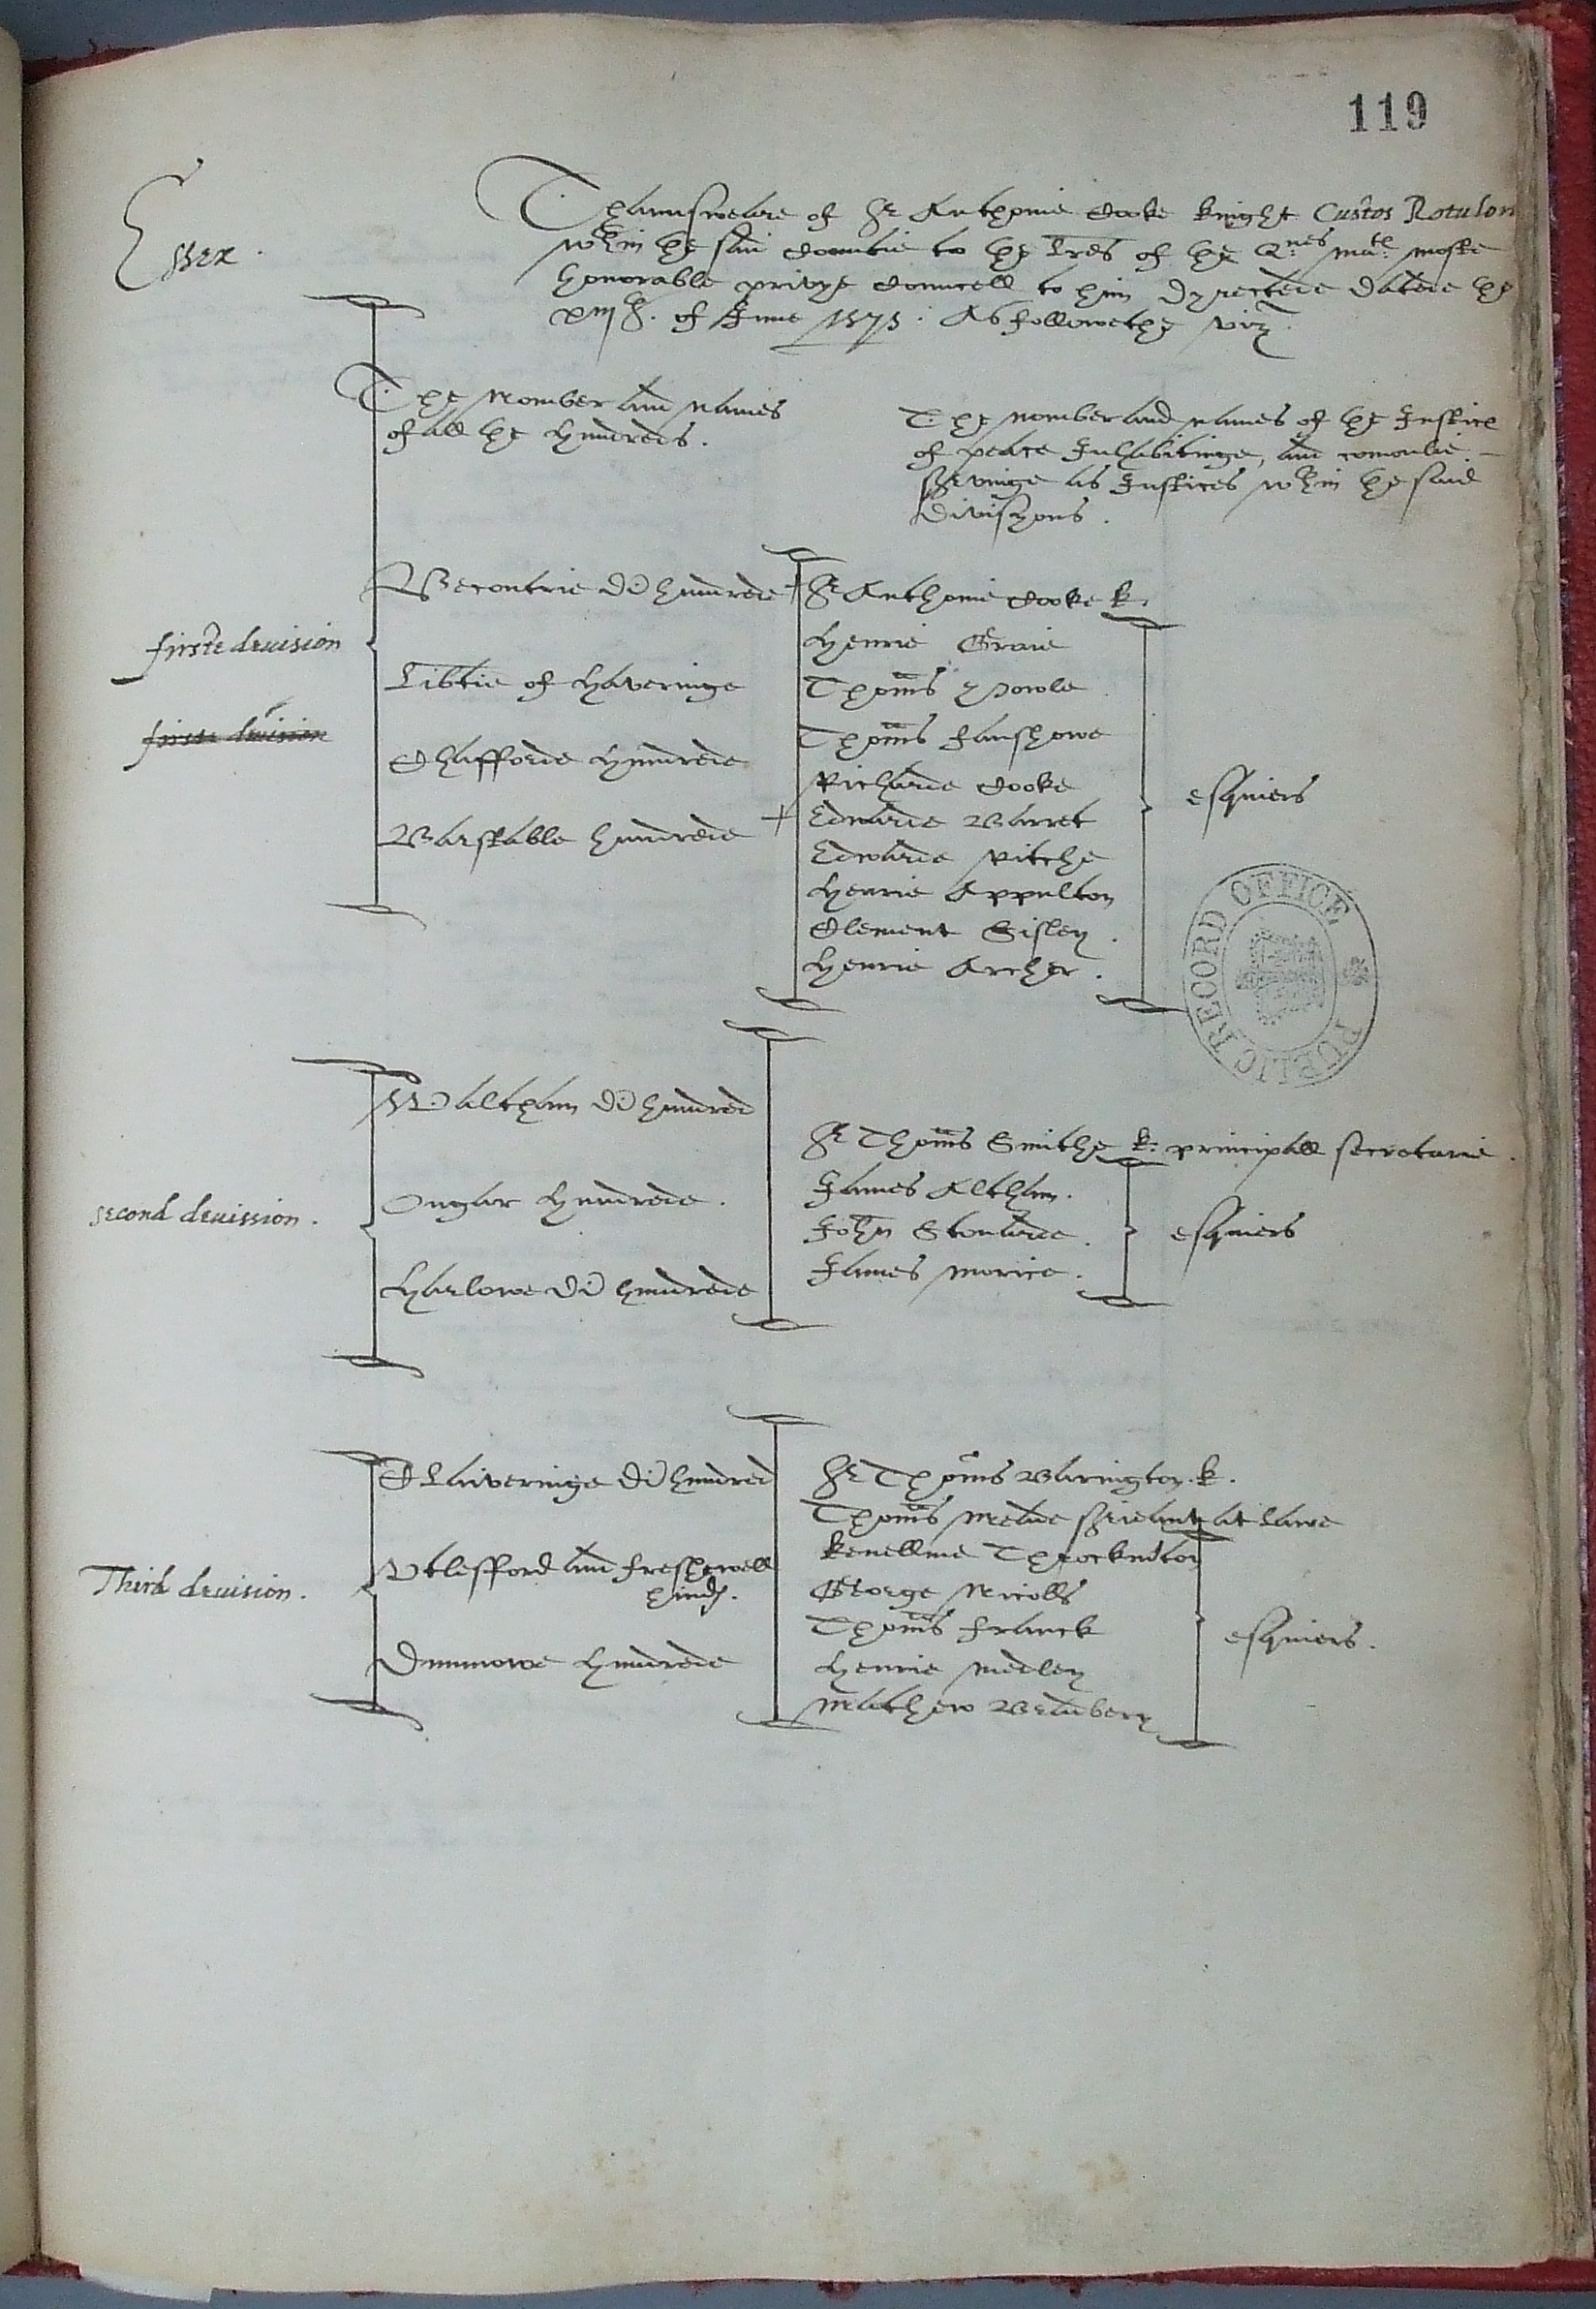 119
Essex.
Thaunsweare of Sr Anthonie Cooke knight Custos Rotulor
wthin the said Countie to the lres of the Qnes matie moste
honorable privye Councell to him dyrectede datede the
xiijth. of June 1575. As followethe viz
The nomber and names
of all the hundreds.
The nomber and names of the Justice
of peace Inhabitinge, and comonlie
servinge as Justices wthin the said
divisyons.
firste deuision
firste deuision
Becontrie di hundrede
Libtie of Haveringe
Chafforde hundrede
Barstable hundrede
+ Sr Anthonie Cooke k.
Henrie Graie
Thoms Powle
Thoms Fanshowe
Richarde Cooke
+ Edwarde Barret
Edwarde Ritche
Henrie Appulton
Clement Sisley.
Henrie Archer.
esquiers
PUBLIC RECORD OFFICE
second deuission.
Waltham di hundred
Ongar hundrede.
Harlowe di hundrede
Sr Thoms Smithe k: principall secretarie.
James Altham.
John Stonarde.
James Morice.
esquiers
Third deuision.
Claiveringe di hundred
Vtlesfford and freshewell
hundr.
Dunmowe hundrede
Sr Thoms Barington. k.
Thoms Meade serieant at lawe
Kenellme Throckmton
George Nicolls
Thoms Franck
Henrie Medley
Mathew Bradbery
esquiers.